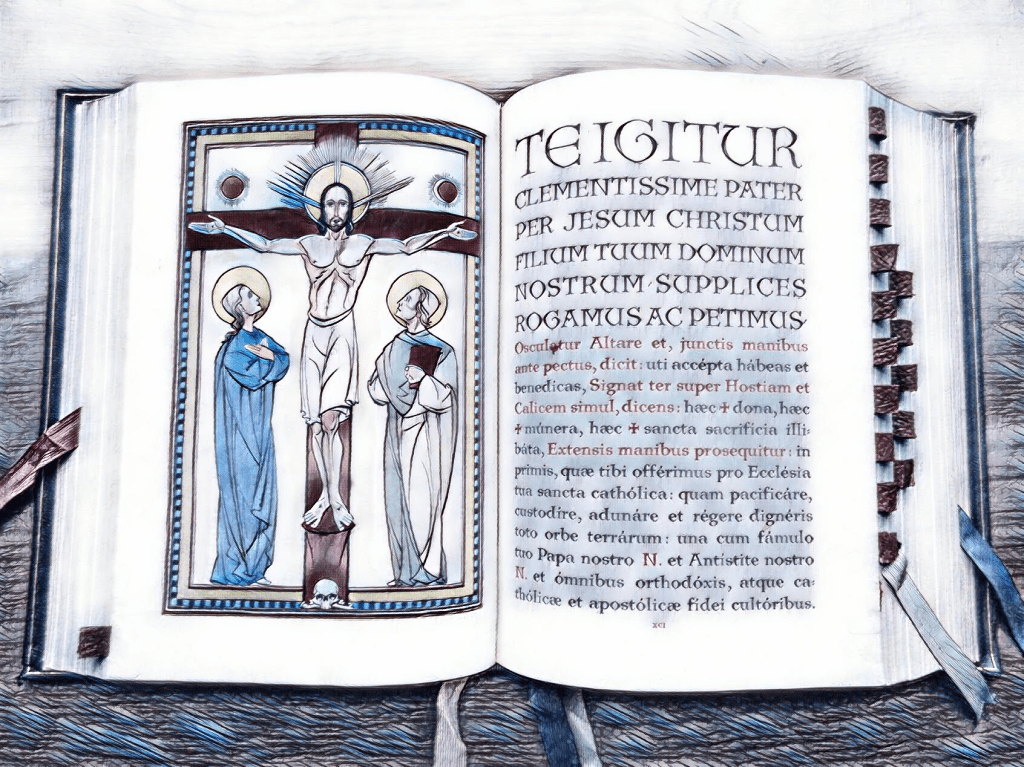 TE IGITUR
CLEMENTISSIME PATER
PER JESUM CHRISTUM
FILIUM TUUM DOMINUM
NOSTRUM SUPPLICES
ROGAMUS AC PETIMUS,
Osculatur Altare et, junctis manibus
ante pectus, dicit: uti accépta hábeas et
benedicas, Signat ter super Hostiam et
Calicem simul, dicens: hæc ✠ dona, hæc
✠ múnera, hæc ✠ sancta sacrificia illi-
báta, Extensis manibus prosequitur: in
primis, quæ tibi offérimus pro Ecclésia
tua sancta cathólica: quam pacificáre,
custodíre, adunáre et régere dignéris
toto orbe terrárum: una cum fámulo
tuo Papa nostro N. et Antístite nostro
N. et ómnibus orthodóxis, atque ca-
thólicæ et apostólicæ fidei cultóribus.
XCI